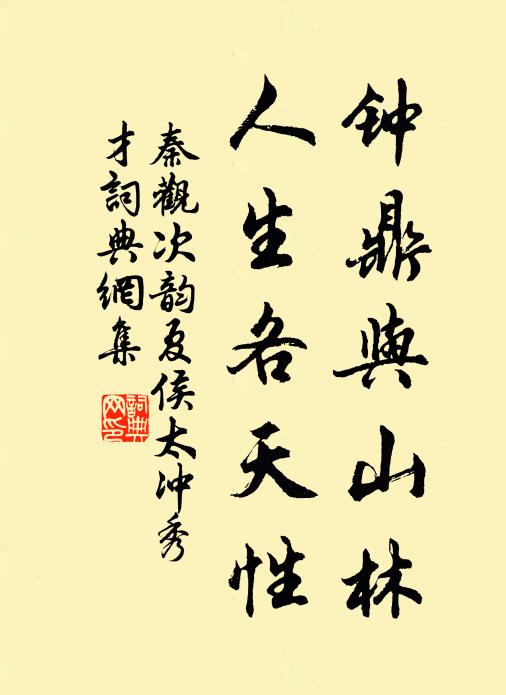 钟鼎與山林
人生各天性
秦觀次韵夏侯太冲秀
才詞典網集
詞典
网印